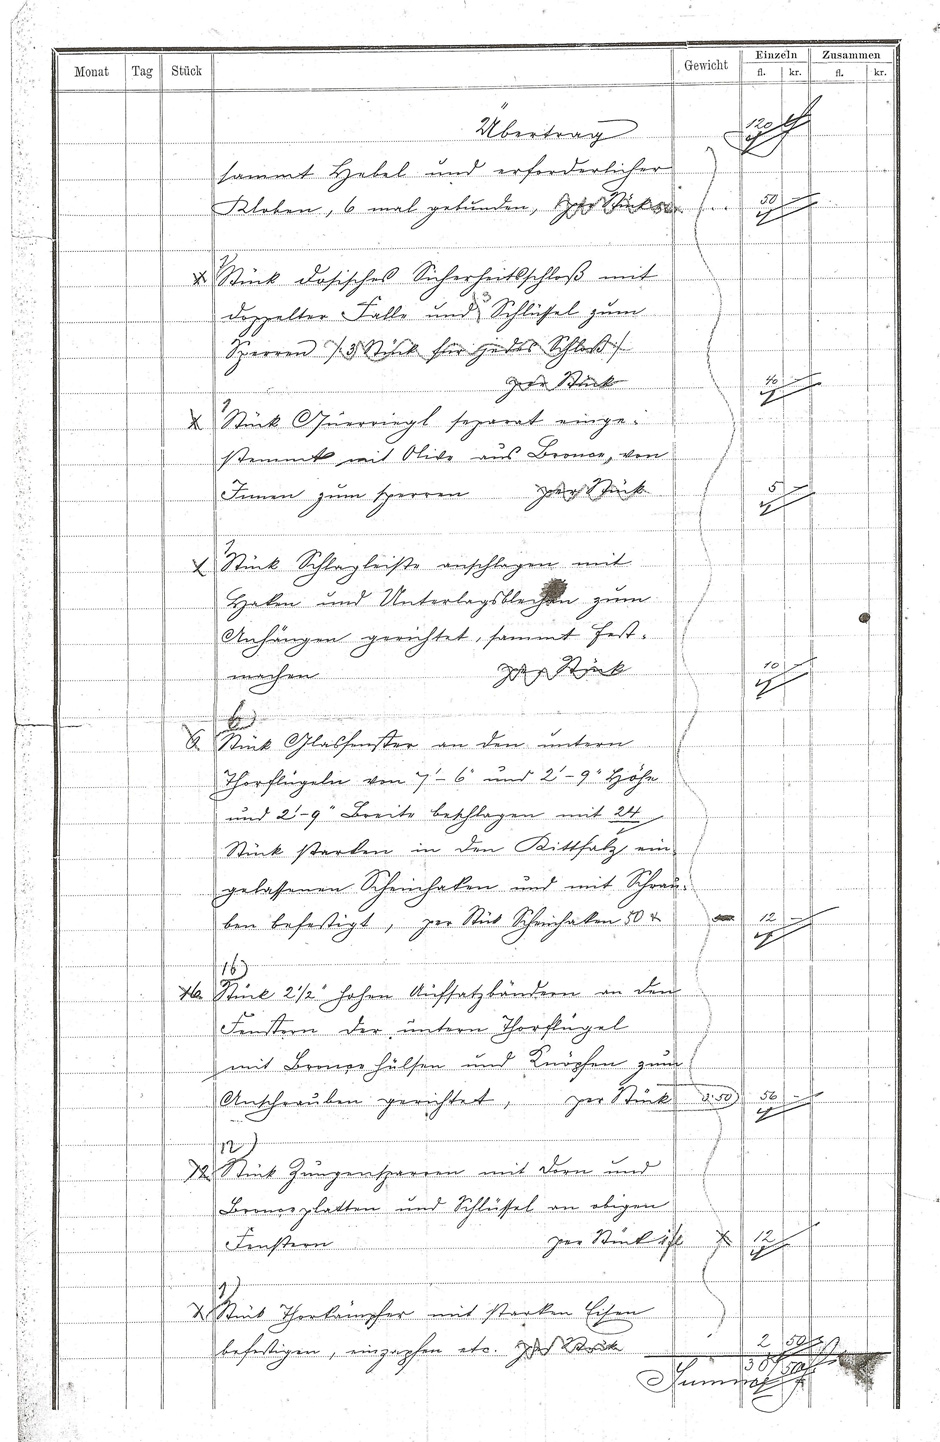 Monat Tag Stück Gewicht Einzeln Zusammen
fl. kr. fl. kr.
Übertrag 120
sammt Hebel und erforderlicher
Kloben, 6 mal gebunden, per Stück 50 –
1
Stück dosisches Sicherheitsschloß mit
doppelter Falle und 3 Schlüssel zum
Sperren /: 3 Stück für jedes Schloß :/
per Stück 40 –
1
Stück Querriegl separat einge-
stemmt mit Olive aus Bronce, von
Innen zum sperren per Stück 5 –
1
Stück Schlagleiste anschlagen mit
Haken und Unterlagsblechen zum
Anhängen gerichtet, sammt Fest-
machen per Stück 10 –
6)
6 Stück Glasfenster an den untern
Thorflügeln von 7'–6" und 2'–9" Höhe
und 2'–9" Breite beschlagen mit 24
Stück starken in den Kittfalz ein-
gelassenen Scheinhaken und mit Schrau-
ben befestigt, per Stük Scheinhaken 50 x 12 –
16)
16 Stück 2 1/2" hohen Aufsatzbändern an den
Fenstern der untern Thorflügel
mit Broncehülsen und Knöpfen zum
Anschrauben gerichtet, per Stück 3·50 56 –
12)
12 Stück Zungensparren mit Dorn und
Bronceplatten und Schlüssel an obigen
Fenstern per Stück 1 fl 12
1)
Stük Thorkämpfer mit starken Eisen
befestigen, einzapfen etc. per Stück 2 50
Summe 50